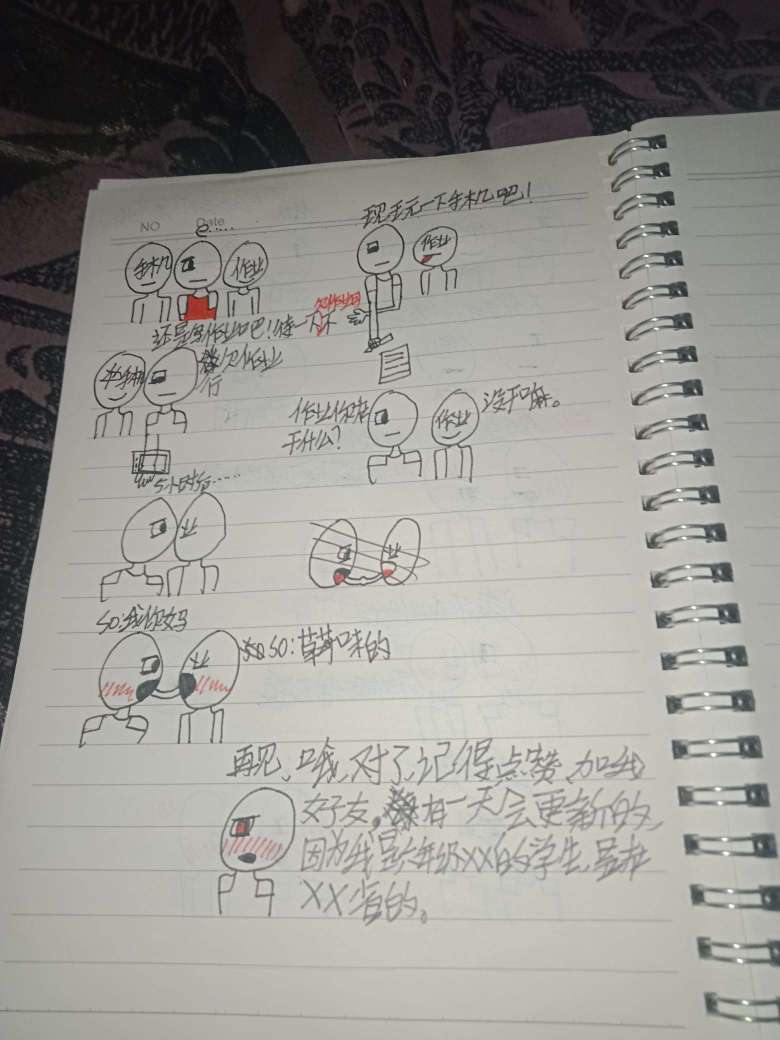 NO Date
e.....
手机 作业
现在玩一下手机吧!
作业
还是写作业吧!待一下不
欠作业
行
手机
作业你在
干什么?
作业
没干嘛。
5小时后.....
SO:我你妈
SO:草莓味的
再见,哦,对了,记得点赞,加我
好友,有一天会更新的,
因为我是六年级XX的学生,是在
XX省的。